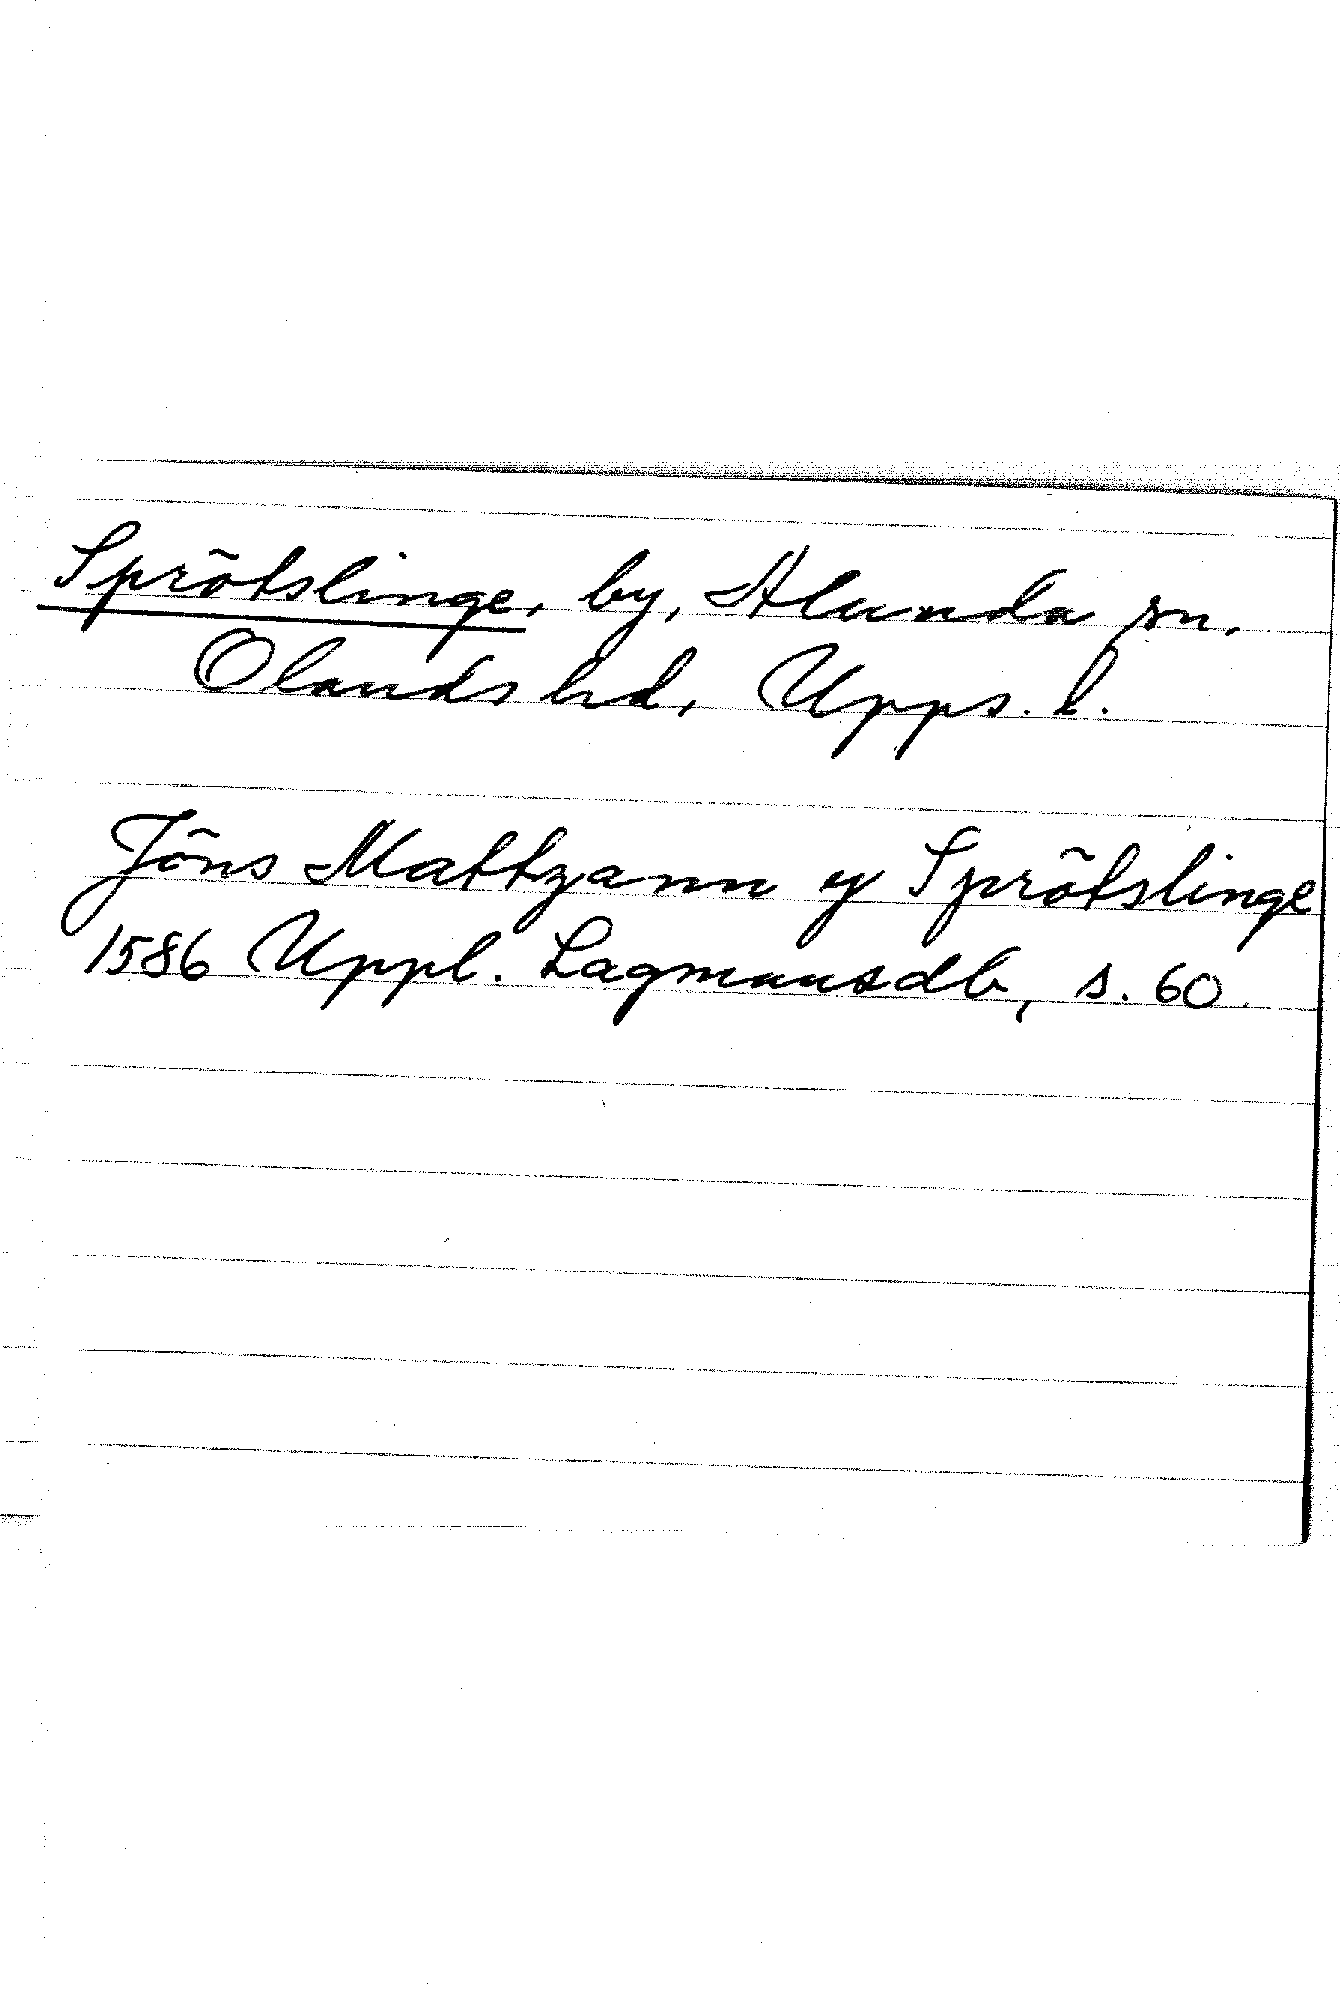 Sprötslinge, by, Alunda sn,
Olands hd, Upps. l.
Jöns Mattzann ij Sprötslinge
1586 Uppl. Lagmansdb, s. 60.